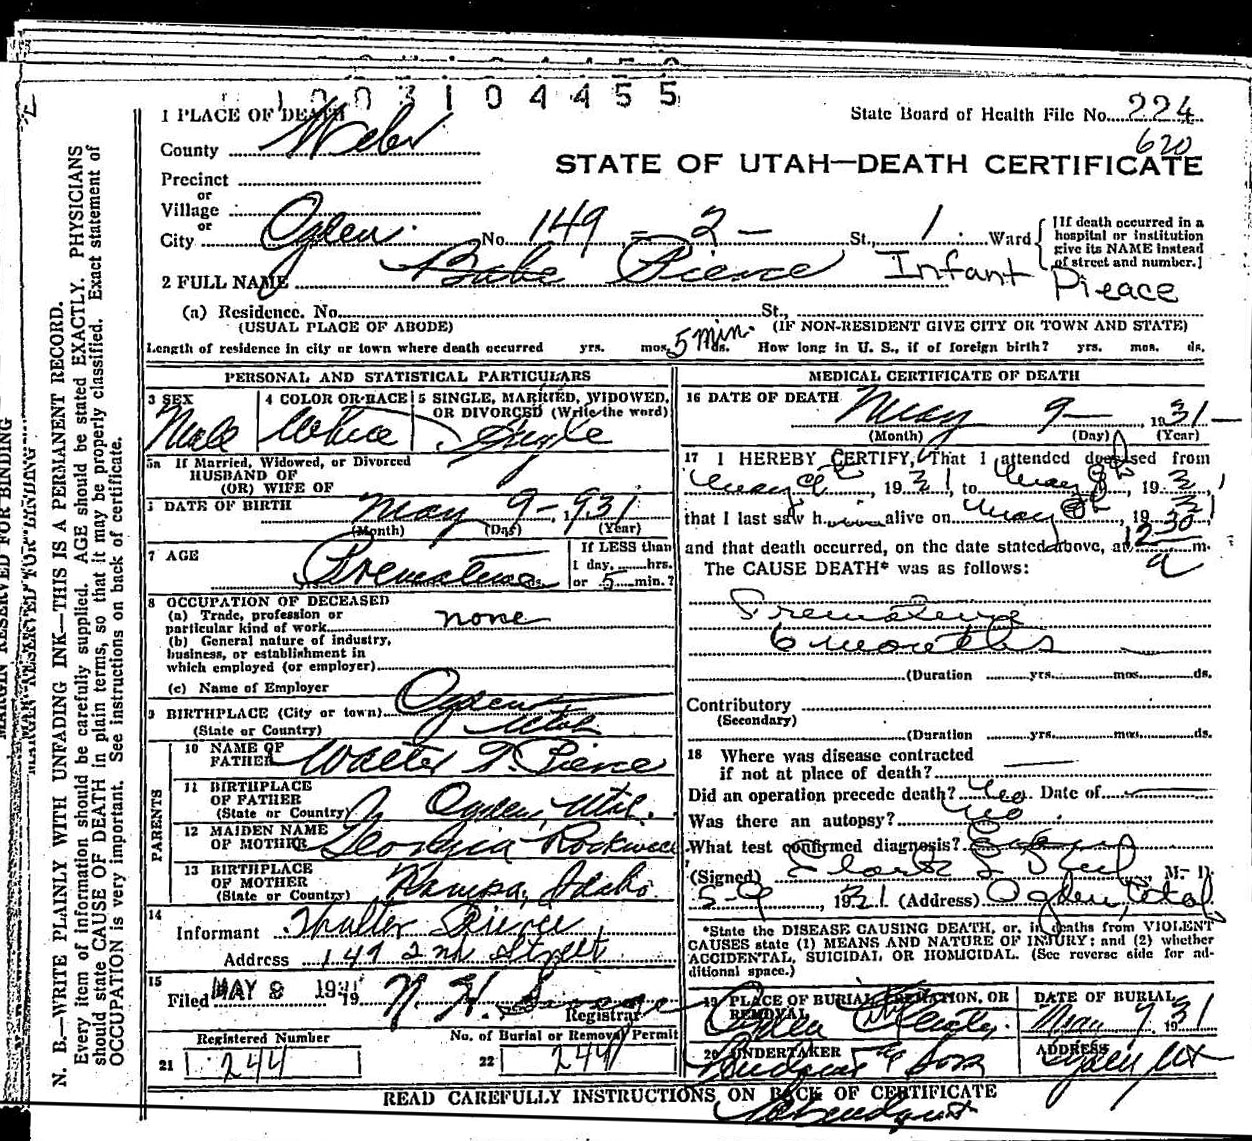 1 0 0 3 1 0 4 4 5 5
1 PLACE OF DEATH
State Board of Health File No. 224
620
County Weber
STATE OF UTAH—DEATH CERTIFICATE
Precinct
or
Village
or
City Ogden. No. 149 - 2 - St., 1 Ward
[If death occurred in a
hospital or institution
give its NAME instead
of street and number.]
2 FULL NAME Babe Pierce Infant Pieace
(a) Residence. No. St.,
(USUAL PLACE OF ABODE) (IF NON-RESIDENT GIVE CITY OR TOWN AND STATE)
Length of residence in city or town where death occurred yrs. mos. 5 min. ds. How long in U. S., if of foreign birth? yrs. mos. ds.
PERSONAL AND STATISTICAL PARTICULARS
3 SEX
Male
4 COLOR OR RACE
White
5 SINGLE, MARRIED, WIDOWED,
OR DIVORCED (Write the word)
Single
5a If Married, Widowed, or Divorced
HUSBAND OF
(OR) WIFE OF
DATE OF BIRTH May 9 - 1931
(Month) (Day) (Year)
7 AGE Premature
yrs. ds.
If LESS than
1 day, hrs.
or 5 min.?
8 OCCUPATION OF DECEASED
(a) Trade, profession or
particular kind of work none
(b) General nature of industry,
business, or establishment in
which employed (or employer)
(c) Name of Employer
9 BIRTHPLACE (City or town) Ogden
(State or Country) Utah
PARENTS
10 NAME OF
FATHER Walter F. Pierce
11 BIRTHPLACE
OF FATHER
(State or Country) Ogden, Utah.
12 MAIDEN NAME
OF MOTHER Georgia Rockwell
13 BIRTHPLACE
OF MOTHER
(State or Country) Nampa, Idaho.
14
Informant Walter Pierce
Address 149 2nd Street
15
Filed MAY 9 1931 19 N. H.
Registrar
Registered Number
21 244
No. of Burial or Removal Permit
22 244
MEDICAL CERTIFICATE OF DEATH
16 DATE OF DEATH May 9 - 1931
(Month) (Day) (Year)
17 I HEREBY CERTIFY, That I attended deceased from
May 9th, 1931, to May 9th, 1931
that I last saw him alive on May 9th, 1931
and that death occurred, on the date stated above, at 12-30 a m.
The CAUSE DEATH* was as follows:
Premature
6 months
(Duration yrs. mos. ds.
Contributory
(Secondary)
(Duration yrs. mos. ds.
18 Where was disease contracted
if not at place of death?
Did an operation precede death? No. Date of
Was there an autopsy? No
What test confirmed diagnosis?
(Signed) Clark M- D.
5-9, 1931 (Address) Ogden, Utah
*State the DISEASE CAUSING DEATH, or, in deaths from VIOLENT
CAUSES state (1) MEANS AND NATURE OF INJURY; and (2) whether
ACCIDENTAL, SUICIDAL OR HOMICIDAL. (See reverse side for ad-
ditional space.)
19 PLACE OF BURIAL, CREMATION, OR
REMOVAL
Ogden City
DATE OF BURIAL
May 9 1931
20 UNDERTAKER
Lindquist & Sons
ADDRESS
Ogden Ut
READ CAREFULLY INSTRUCTIONS ON BACK OF CERTIFICATE
Lindquist
MARGIN RESERVED FOR BINDING
MARGIN RESERVED FOR BINDING
N. B.—WRITE PLAINLY WITH UNFADING INK—THIS IS A PERMANENT RECORD.
Every item of information should be carefully supplied. AGE should be stated EXACTLY. PHYSICIANS
should state CAUSE OF DEATH in plain terms, so that it may be properly classified. Exact statement of
OCCUPATION is very important. See instructions on back of certificate.